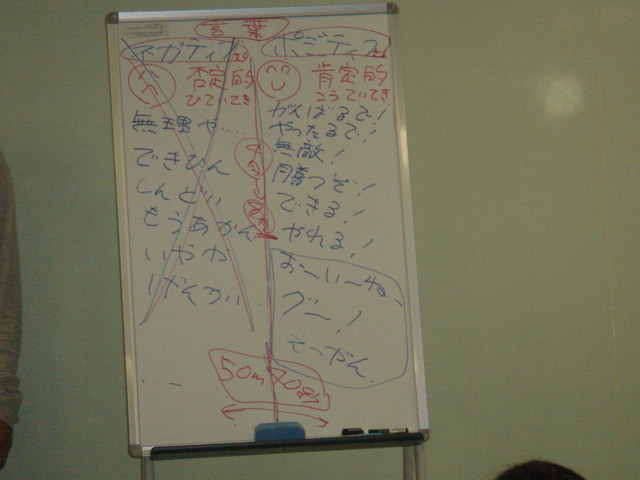 言葉
ネガティブ
否定的
ひていてき
無理や…
できひん
しんどい
もうあかん
いやや
ポジティブ
肯定的
こうていてき
がんばるで!
やったるで!
無敵!
勝つぞ!
できる!
やれる!
おーいーねー
グー!
えーやん
50m